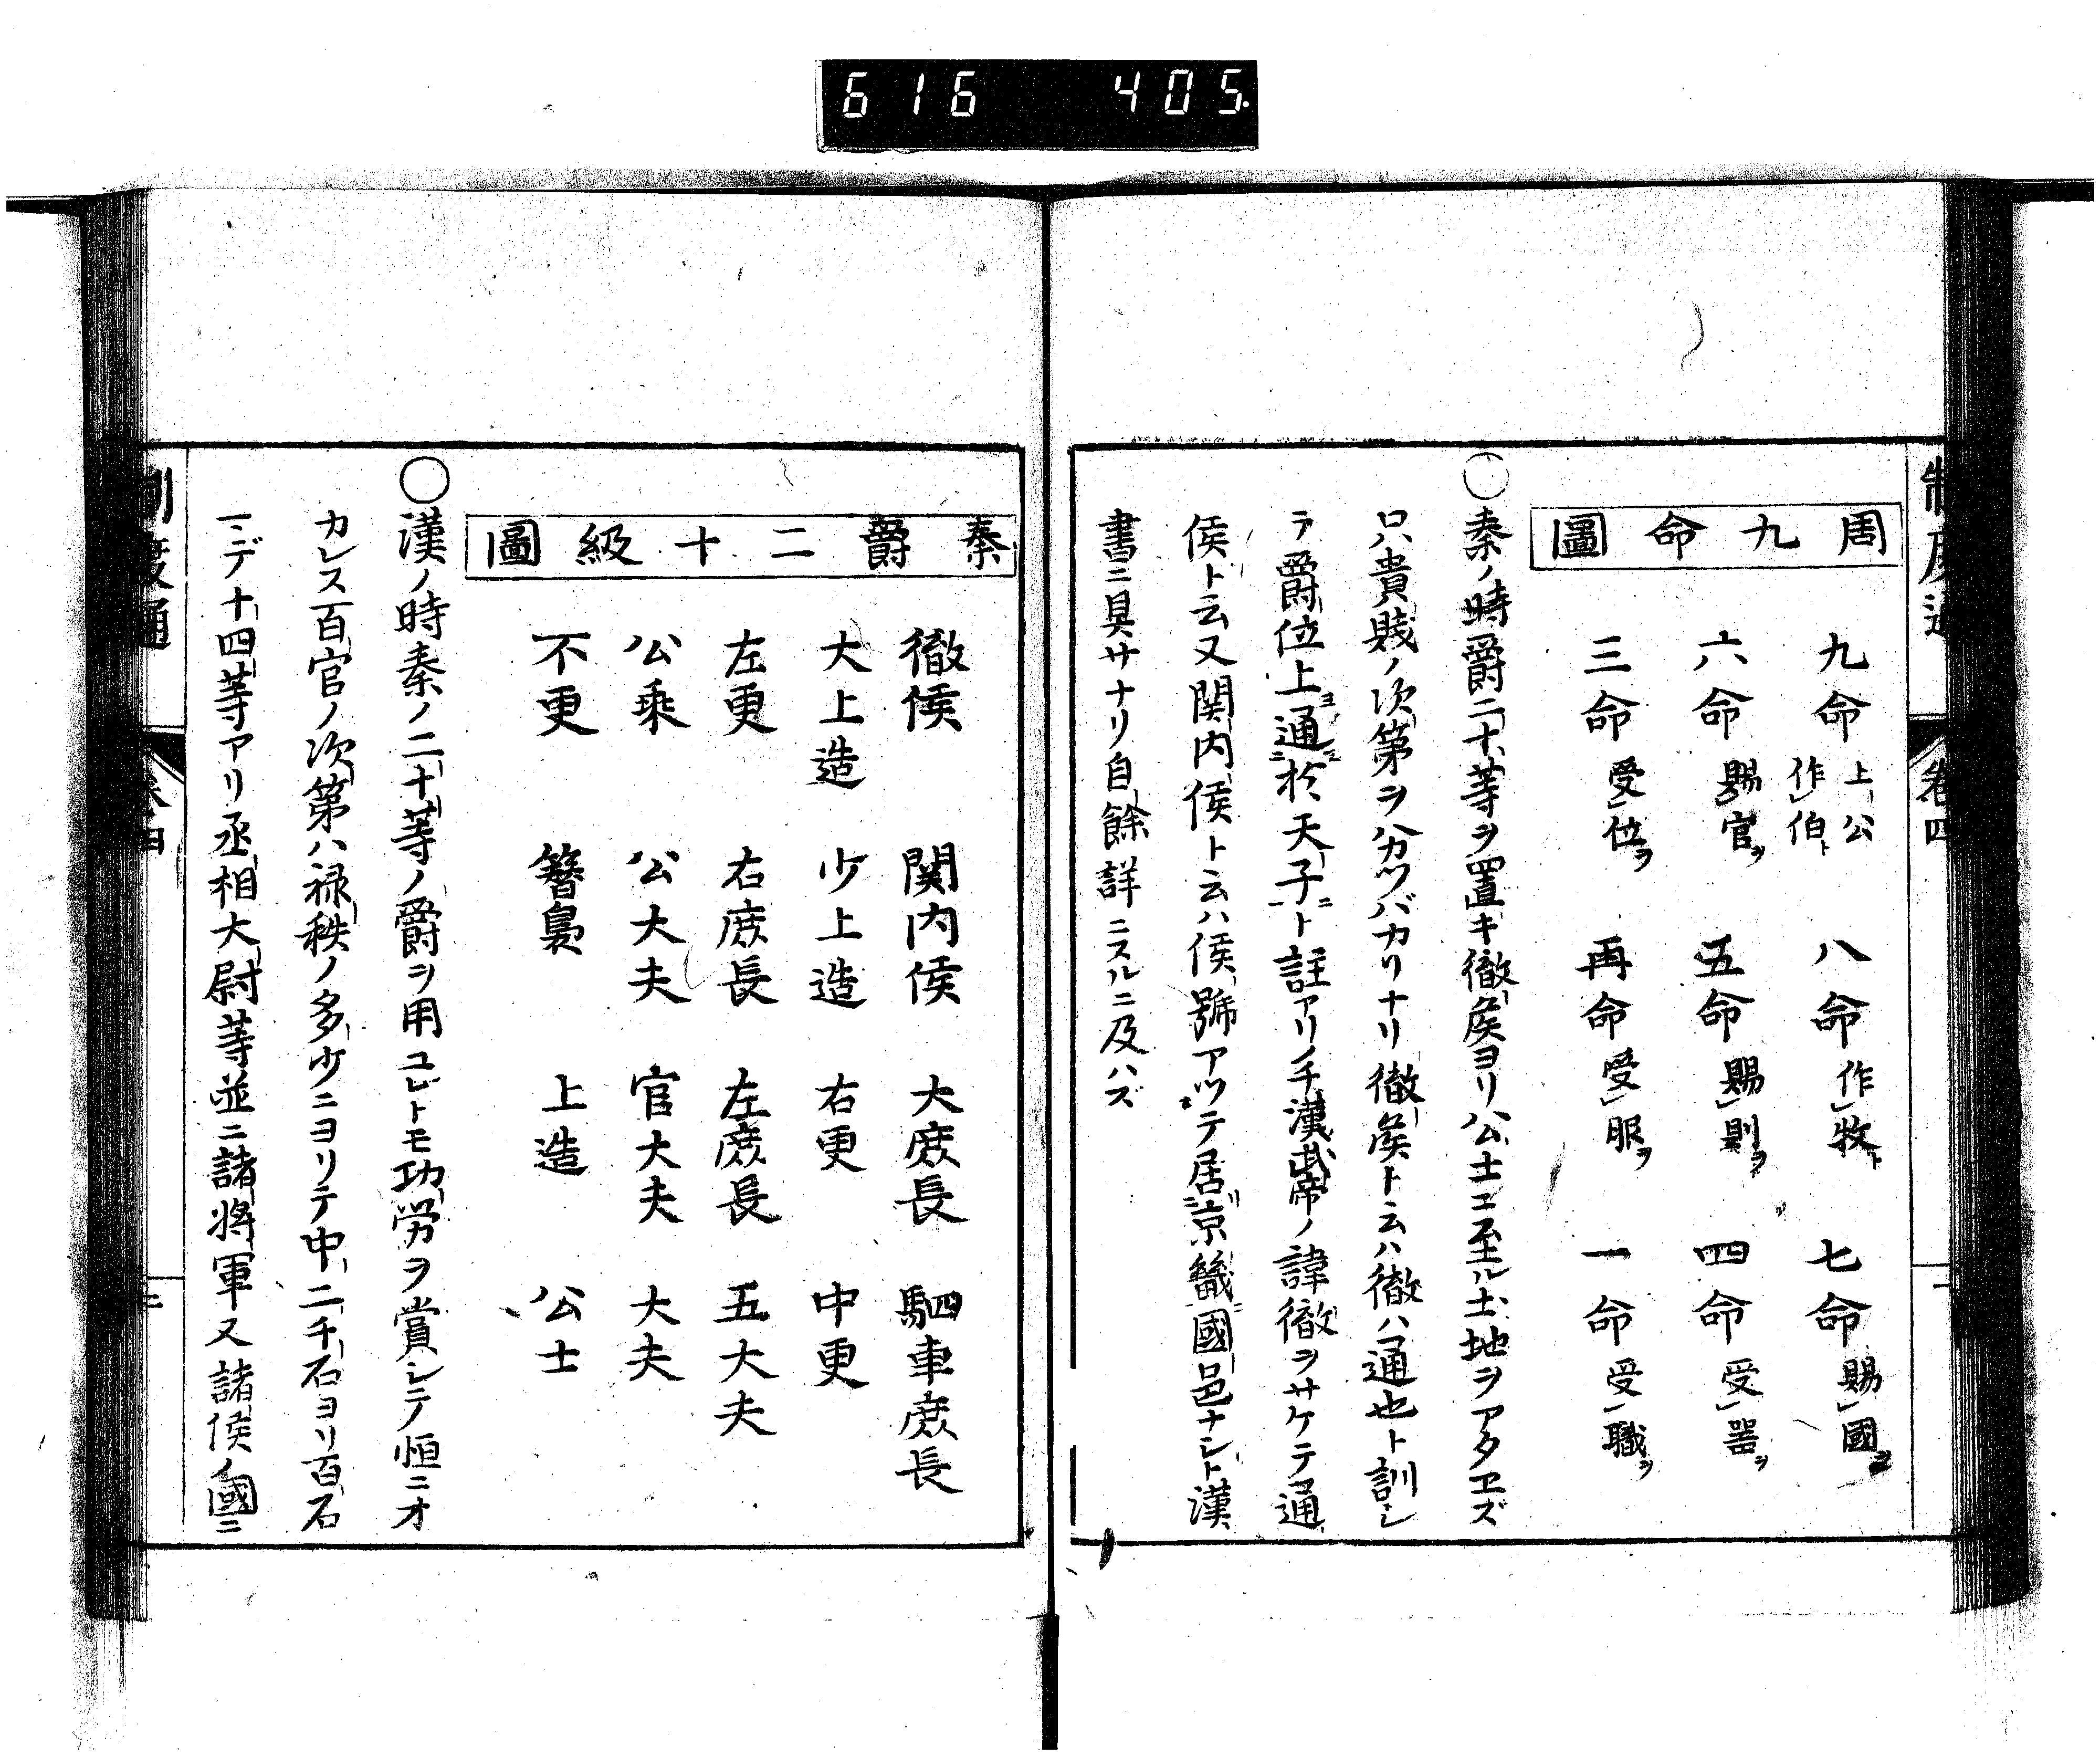 616 405
制度通
卷四
周九命圖
九命 上公作伯ト 八命 作牧ト 七命 賜國ヲ
六命 賜官ヲ 五命 賜則ヲ 四命 受噐ヲ
三命 受位ヲ 再命 受服ヲ 一命 受職ヲ
○秦ノ時爵二十等ヲ置キ徹矦ヨリ公士ニ至ル土地ヲアタヱズ
只貴賎ノ次第ヲ分ツバカリナリ徹矦ト云ハ徹ハ通也ト訓シ
テ爵位上通於天子ト註アリノチ漢武帝ノ諱徹ヲサケテ通
侯ト云又関内侯ト云ハ侯號アツテ居京畿國邑ナシト漢
書ニ具サナリ自餘詳ニスルニ及ハズ
秦爵二十級圖
徹侯 関内侯 大庶長 駟車庶長
大上造 少上造 右更 中更
左更 右庶長 左庶長 五大夫
公乘 公大夫 官大夫 大夫
不更 簪裊 上造 公士
○漢ノ時秦ノ二十等ノ爵ヲ用ユレトモ功労ヲ賞シテ恒ニオ
カレス百官ノ次第ハ禄秩ノ多少ニヨリテ中二千石ヨリ百石
マデ十四等アリ丞相大尉等並ニ諸將軍又諸侯ノ國ニ
制度通
卷四
二